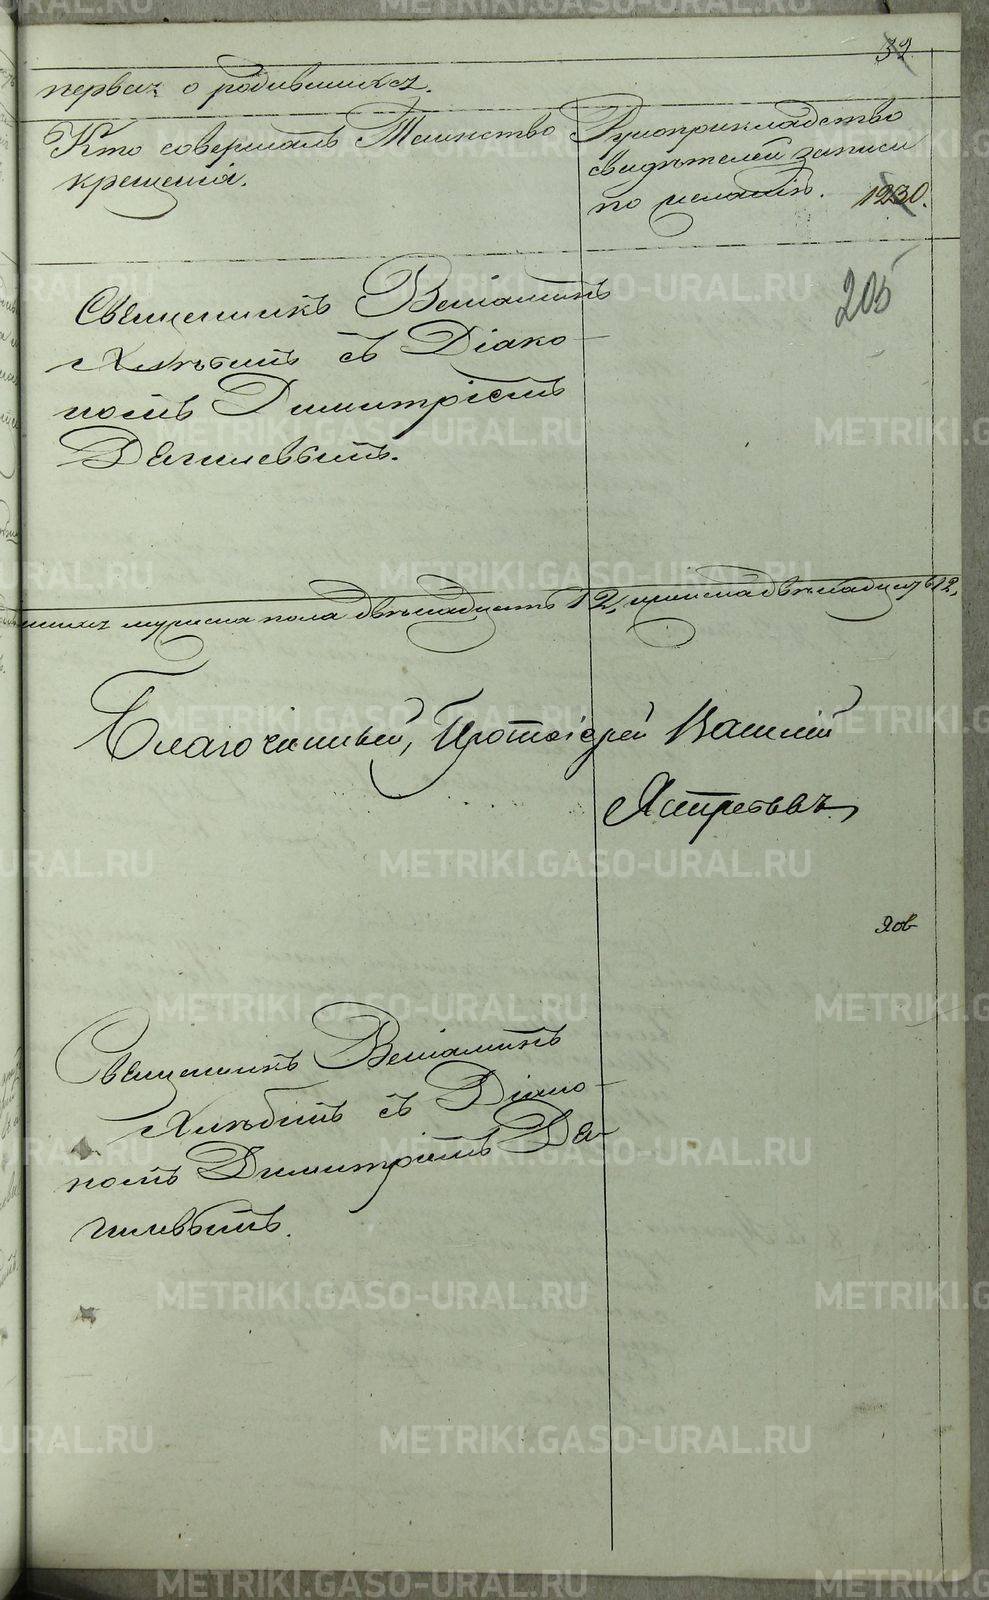 32
первая о родившихся.
Кто совершалъ Таинство
крещенія.
Рукоприкладство
свидѣтелей записи
по желанію.
1230.
205
Священникъ Веніаминъ
Хлѣбинъ съ Діако-
номъ Димитріемъ
Дягилевымъ.
мужска пола двѣнадцать 12, женска двѣнадцать 12.
Благочинный, Протоіерей Василій
Ястребовъ
Священникъ Веніаминъ
Хлѣбинъ съ Діако-
номъ Димитріемъ Дя-
гилевымъ.
METRIKI.GASO-URAL.RU